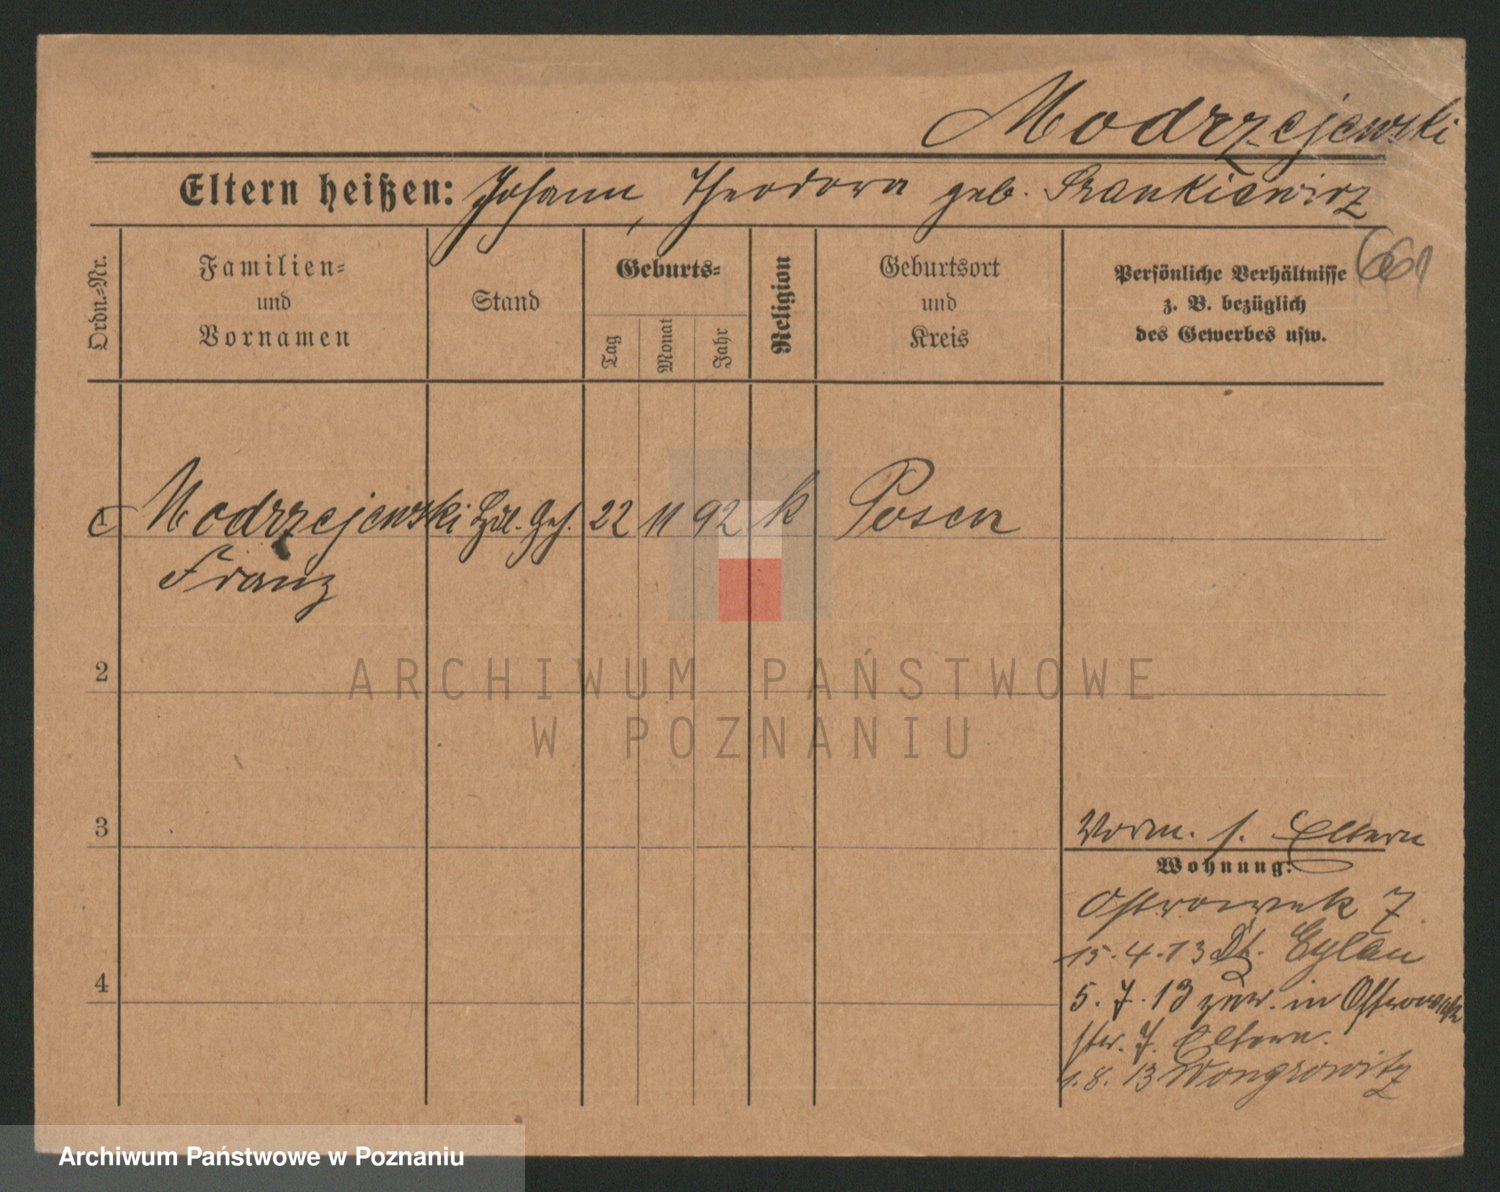 Modrzejewski
Eltern heißen: Johann, Theodora geb. Frankiewicz
661
Ordn.-Nr.
Familien-
und
Vornamen
Stand
Geburts-
Tag
Monat
Jahr
Religion
Geburtsort
und
Kreis
Persönliche Verhältnisse
z. B. bezüglich
des Gewerbes usw.
1 Modrzejewski Hdl. Geh. 22 11 92 k Posen
Franz
2
ARCHIWUM PAŃSTWOWE
W POZNANIU
3
Vorm. s. Eltern
Wohnung:
Ostrowek 7
15.4.13 Dt. Eylau
4
5.7.13 zur. in Ostrowek
7. Eltern.
1.8.13 Wongrowitz
Archiwum Państwowe w Poznaniu